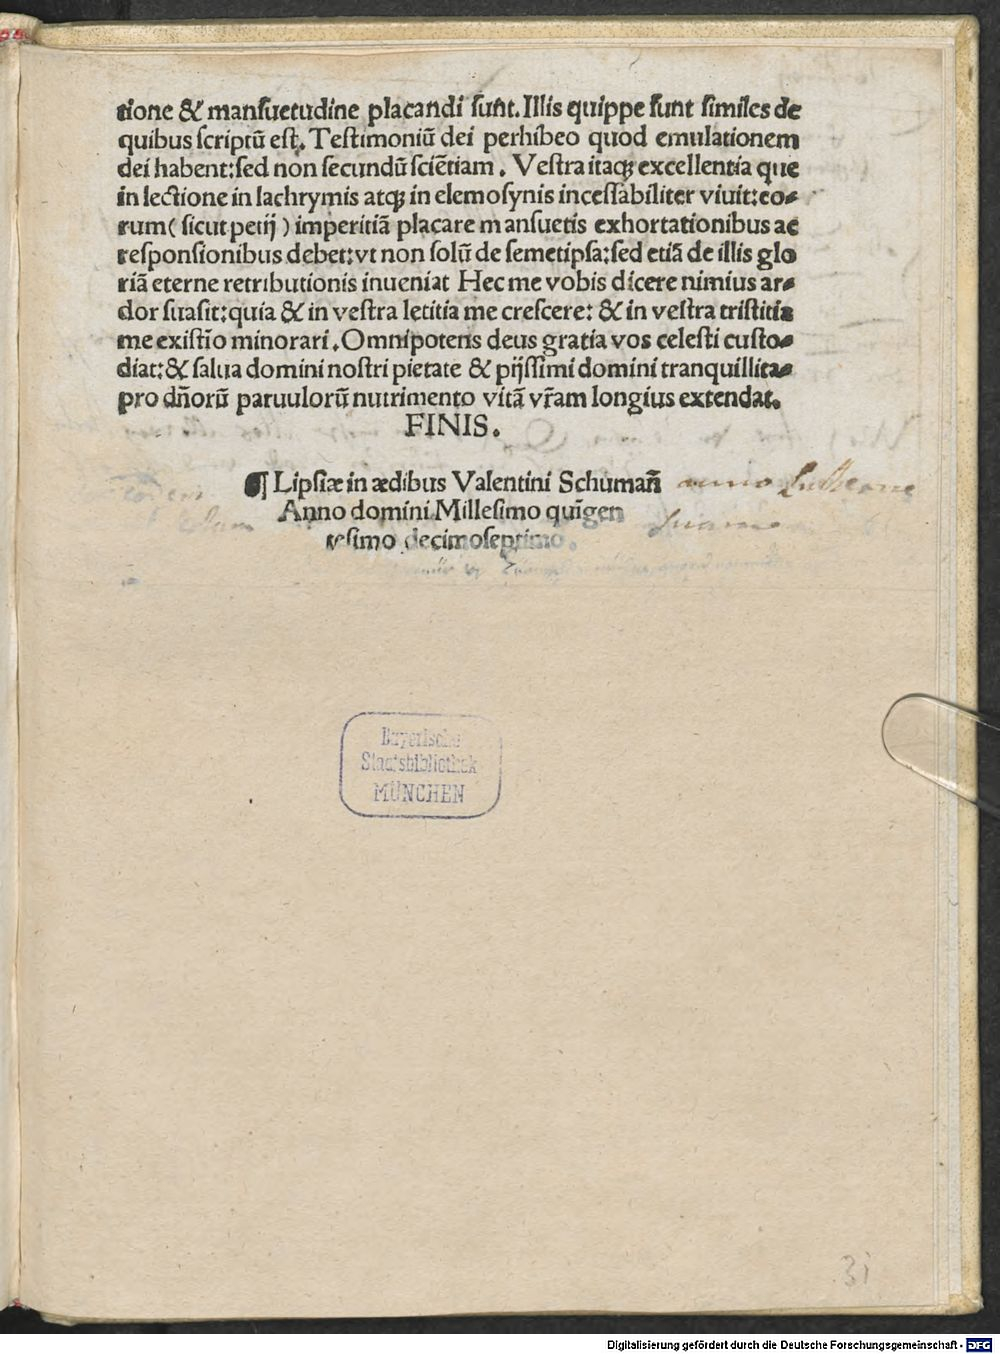 tione & mansuetudine placandi sunt. Illis quippe sunt similes de
quibus scriptū est. Testimoniū dei perhibeo quod emulationem
dei habent: sed non secundū sciētiam. Vestra itaqꝫ excellentia que
in lectione in lachrymis atqꝫ in elemosynis incessabiliter viuit: eo-
rum (sicut petij) imperitiā placare mansuetis exhortationibus ac
responsionibus debet: vt non solū de semetipsa: sed etiā de illis glo
riā eterne retributionis inueniat Hec me vobis dicere nimius ar-
dor suasit: quia & in vestra letitia me crescere: & in vestra tristitia
me existīo minorari. Omnipotens deus gratia vos celesti custo-
diat: & salua domini nostri pietate & pijssimi domini tranquillita-
pro dn̄orū paruulorū nutrimento vitā vr̄am longius extendat.
FINIS.
¶ Lipsiæ in ædibus Valentini Schuman̄ anno
Anno domini Millesimo quīgen
tesimo decimoseptimo.
Bayerische
Staatsbibliothek
MÜNCHEN
31
Digitalisierung gefördert durch die Deutsche Forschungsgemeinschaft - DFG